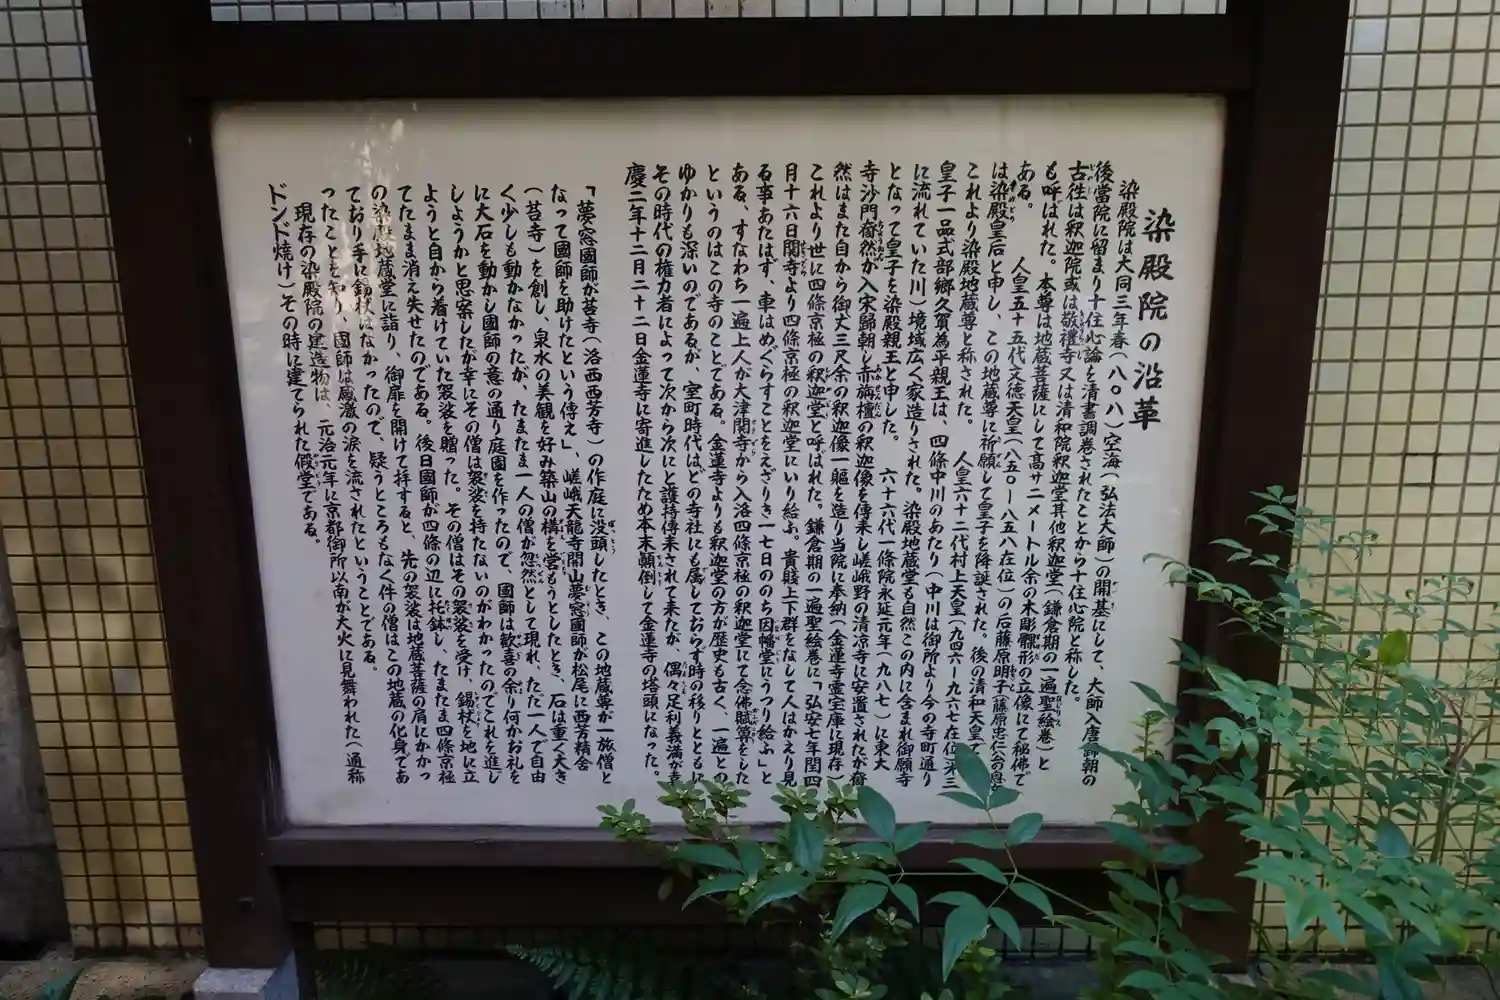 染殿院の沿革
染殿院は大同三年春(八〇八)空海(弘法大師)の開基にして、大師入唐御朝の
後當院に留まり十住心論を清書調巻されたことから十住心院と称した。
古徃は釈迦院或は敬禮寺又は清和院釈迦堂其他釈迦堂(鎌倉期の一遍聖絵巻)と
も呼ばれた。本尊は地蔵菩薩にして高サ二メートル余の木彫髁形の立像にて秘佛で
ある。 人皇五十五代文徳天皇(八五〇ー八五八在位)の后藤原明子(藤原忠仁公の息女
は染殿皇后と申し、この地蔵尊に祈願して皇子を降誕された。後の清和天皇で
これより染殿地蔵尊と称された。 人皇六十二代村上天皇(九四六ー九六七在位)第三
皇子一品式部郷久賀為平親王は、四條中川のあたり(中川は御所より今の寺町通り
に流れていた川)境域広く家造りされた。染殿地蔵堂も自然この内に含まれ御願寺
となって皇子を染殿親王と申した。 六十六代一條院永延元年(九八七)に東大
寺沙門奝然が入宋歸朝し赤旃檀の釈迦像を傳来し嵯峨野の清凉寺に安置されたが奝
然はまた自から御丈三尺余の釈迦像一軀を造り当院に奉納(金蓮寺霊宝庫に現存)
これより世に四條京極の釈迦堂と呼ばれた。鎌倉期の一遍聖絵巻に「弘安七年閏四
月十六日関寺より四條京極の釈迦堂にいり給ふ。貴賤上下群をなして人はかえり見
る事あたはず、車はめぐらすことをえざりき一七日ののち因幡堂にうつり給ふ」と
ある、すなわち一遍上人が大津関寺から入洛四條京極の釈迦堂にて念佛賦算をした
というのはこの寺のことである。金蓮寺よりも釈迦堂の方が歴史も古く、一遍との
ゆかりも深いのであるが、室町時代はどの寺社にも属しておらず時の移りとともに
その時代の権力者によって次から次にと護持傳来されて来たが、偶々足利義満が嘉
慶二年十二月二十二日金蓮寺に寄進したため本末顛倒して金蓮寺の塔頭になった。
「夢窓國師が苔寺(洛西西芳寺)の作庭に没頭したとき、この地蔵尊が一旅僧と
なって國師を助けたという傳え」、嵯峨天龍寺開山夢窓國師が松尾に西芳精舎
(苔寺)を創し、泉水の美観を好み築山の構を営もうとしたとき、石は重く大き
く少しも動かなかったが、たまたま一人の僧が忽然として現れ、たった一人で自由
に大石を動かし國師の意の通り庭園を作ったので、國師は歓喜の余り何かお礼を
しようかと思案したが幸にその僧は袈裟を持たないのがわかったのでこれを進じ
ようと自から着けていた袈裟を贈った。その僧はその袈裟を受け、錫杖を地に立
てたまま消え失せたのである。後日國師が四條の辺に托鉢し、たまたま四條京極
の染殿地蔵堂に詣り、御扉を開けて拝すると、先の袈裟は地蔵菩薩の肩にかかっ
ており手に錫杖はなかったので、疑うところもなく件の僧はこの地蔵の化身であ
ったことを知り、國師は感激の涙を流されたということである。
現存の染殿院の建造物は、元治元年に京都御所以南が大火に見舞われた(通称
ドンド焼け)その時に建てられた假堂である。